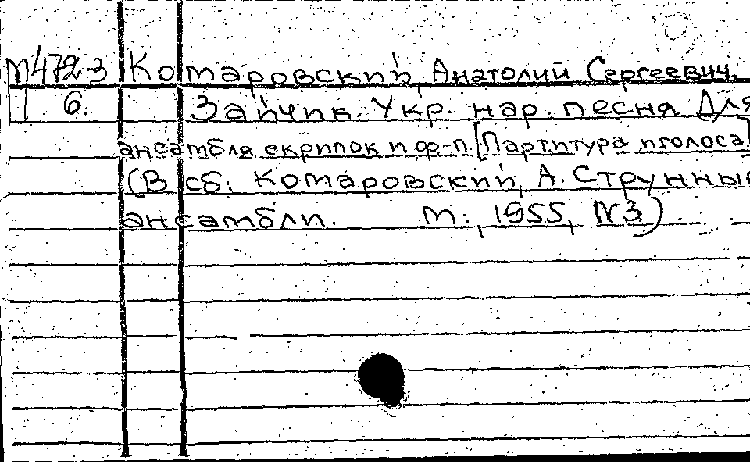 М472-3 Комаровский, Анатолий Сергеевич.
6. Зайчик. Укр. нар. песня Для
ансамбля скрипок и ф-п. [Партитура и голоса]
(В сб: Комаровский, А. Струнные
ансамбли. М:, 1955, №3).